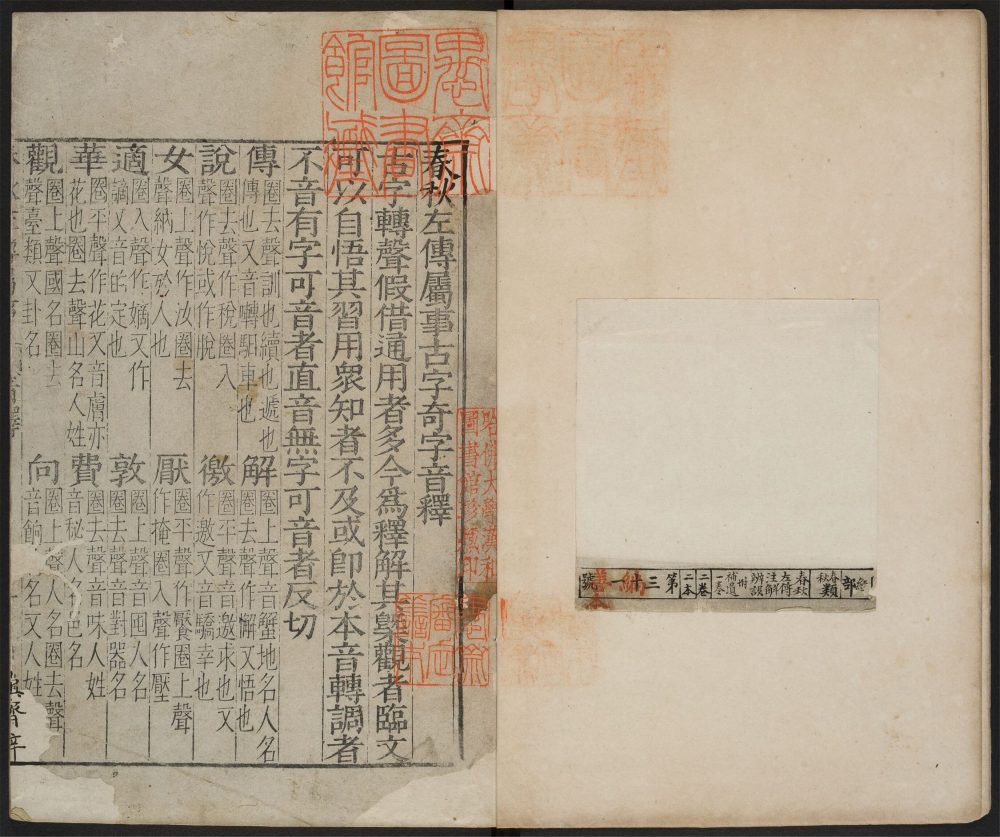 經部
春秋類
春秋左傳注解辨誤二卷附補遺一卷
二本
第三十一號
春秋左傳屬事古字奇字音釋
古字轉聲假借通用者多今爲釋解其槩觀者臨文
可以自悟其習用衆知者不及或卽於本音轉調者
不音有字可音者直音無字可音者反切
傳 圈去聲訓也續也遞也傳也又音囀馹車也
解 圈上聲音蟹地名人名圈去聲作懈又悟也
說 圈去聲作稅圈入聲作悅或作脫
徼 圈平聲音邀求也又作邀又音驕幸也
女 圈上聲作汝圈去聲納女於人也
厭 圈平聲作饜圈上聲作掩圈入聲作壓
適 圈入聲作嫡又作讁又音的定也
敦 圈上聲音囤人名圈去聲音對器名
華 圈平聲作花又音膚亦花也圈去聲山名人姓
費 圈去聲音味人姓音秘人名邑名
觀 圈上聲國名圈去聲臺類又卦名
向 圈上聲人名圈去聲音餉 名又人姓
哈佛大學漢和圖書館珍藏印